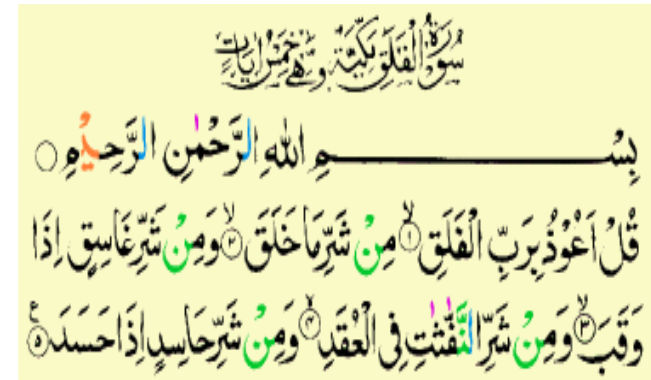 سُوْرَةُ الْفَلَقِ مَكِّيَّةٌ وَّهِيَ خَمْسُ اٰيَاتٍ
بِسْمِ اللهِ الرَّحْمٰنِ الرَّحِيْمِ ○
قُلْ اَعُوْذُ بِرَبِّ الْفَلَقِ ۙ۝۱ مِنْ شَرِّ مَا خَلَقَ ۙ۝۲ وَمِنْ شَرِّ غَاسِقٍ اِذَا
وَقَبَ ۙ۝۳ وَمِنْ شَرِّ النَّفّٰثٰتِ فِى الْعُقَدِ ۙ۝۴ وَمِنْ شَرِّ حَاسِدٍ اِذَا حَسَدَ ۝۵ ع